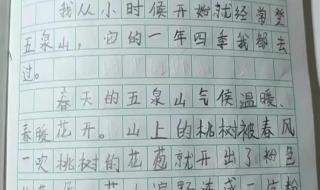 我从小时候开始就经常登
五泉山，它的一年四季我都去
过。
春天的五泉山气候温暖、
春暖花开。山上的桃树被春风
一吹桃树的花苞就开出了粉色